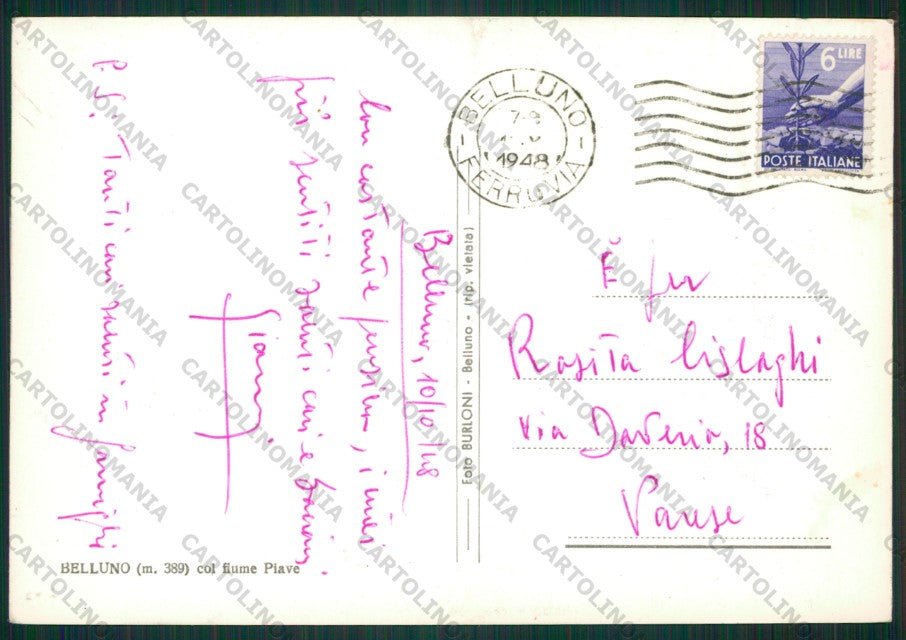 BELLUNO
FERROVIA
7-8
1948
6 LIRE
POSTE ITALIANE
Belluno, 10/10/48
Con costante pensiero, i miei
più sentiti saluti cari e
Gianni
P.S. Tanti cari saluti in famiglia
Rosita Cislaghi
via Daverio, 18
Varese
Foto BURLONI - Belluno - (rip. vietata)
BELLUNO (m. 389) col fiume Piave
CARTOLINOMANIA